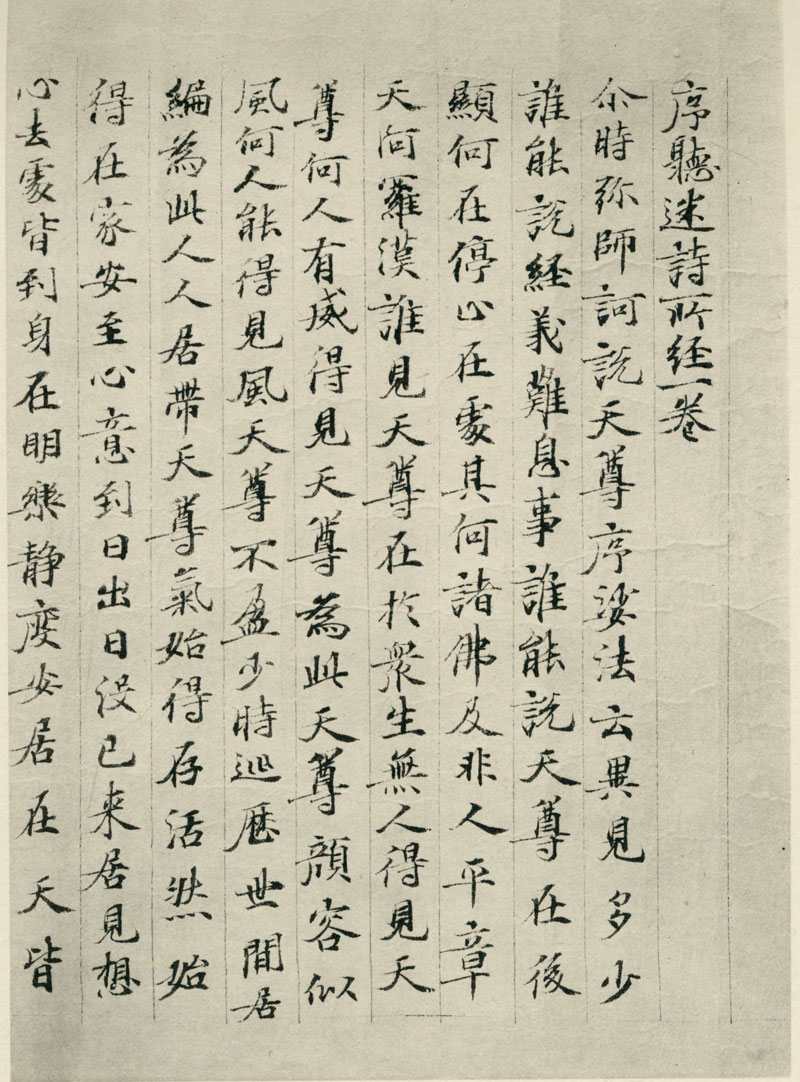 序聽迷詩所経一卷
尒時弥師訶說天尊序娑法云異見多少
誰能說経義難息事誰能說天尊在後
顯何在停止在處其何諸佛及非人平章
天阿羅漢誰見天尊在於衆生無人得見天
尊何人有威得見天尊為此天尊顔容似
風何人能得見風天尊不盈少時巡歷世閒居
編為此人人居帶天尊氣始得存活然始
得在家安至心意到日出日没已来居見想
心去處皆到身在明樂静度安居在天皆